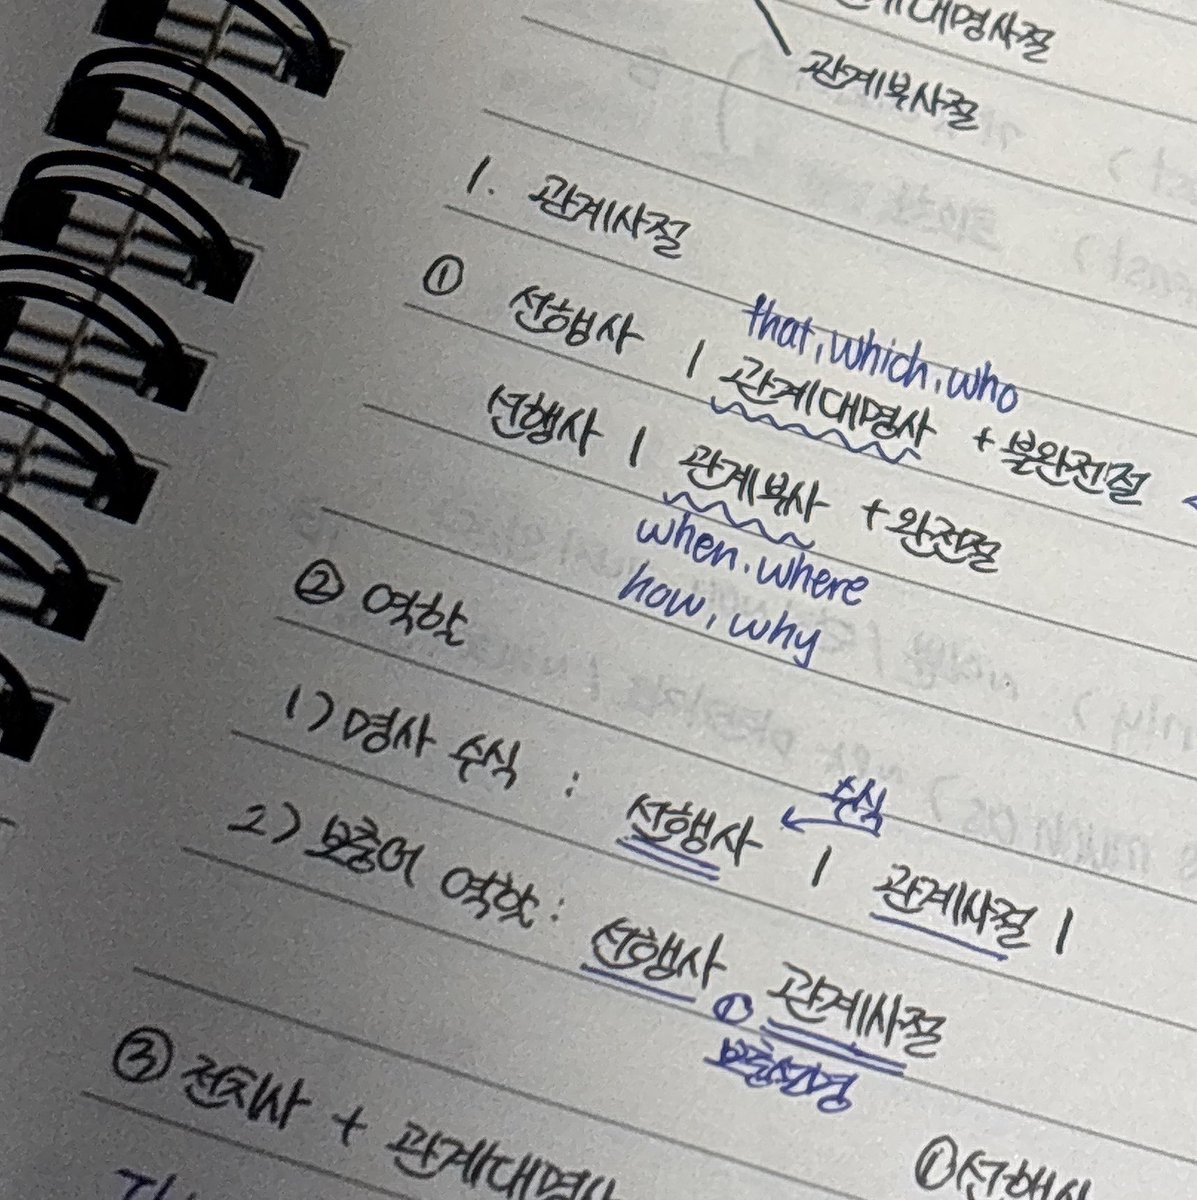 관계대명사절
관계부사절
1. 관계사절
that, which, who
① 선행사 | 관계대명사 + 불완전절
선행사 | 관계부사 + 완전절
when. where
how, why
② 역할
수식
1) 명사 수식 : 선행사 | 관계사절 |
2) 보충어 역할: 선행사 , 관계사절
보충설명
③ 전치사 + 관계대명사
① 선행사